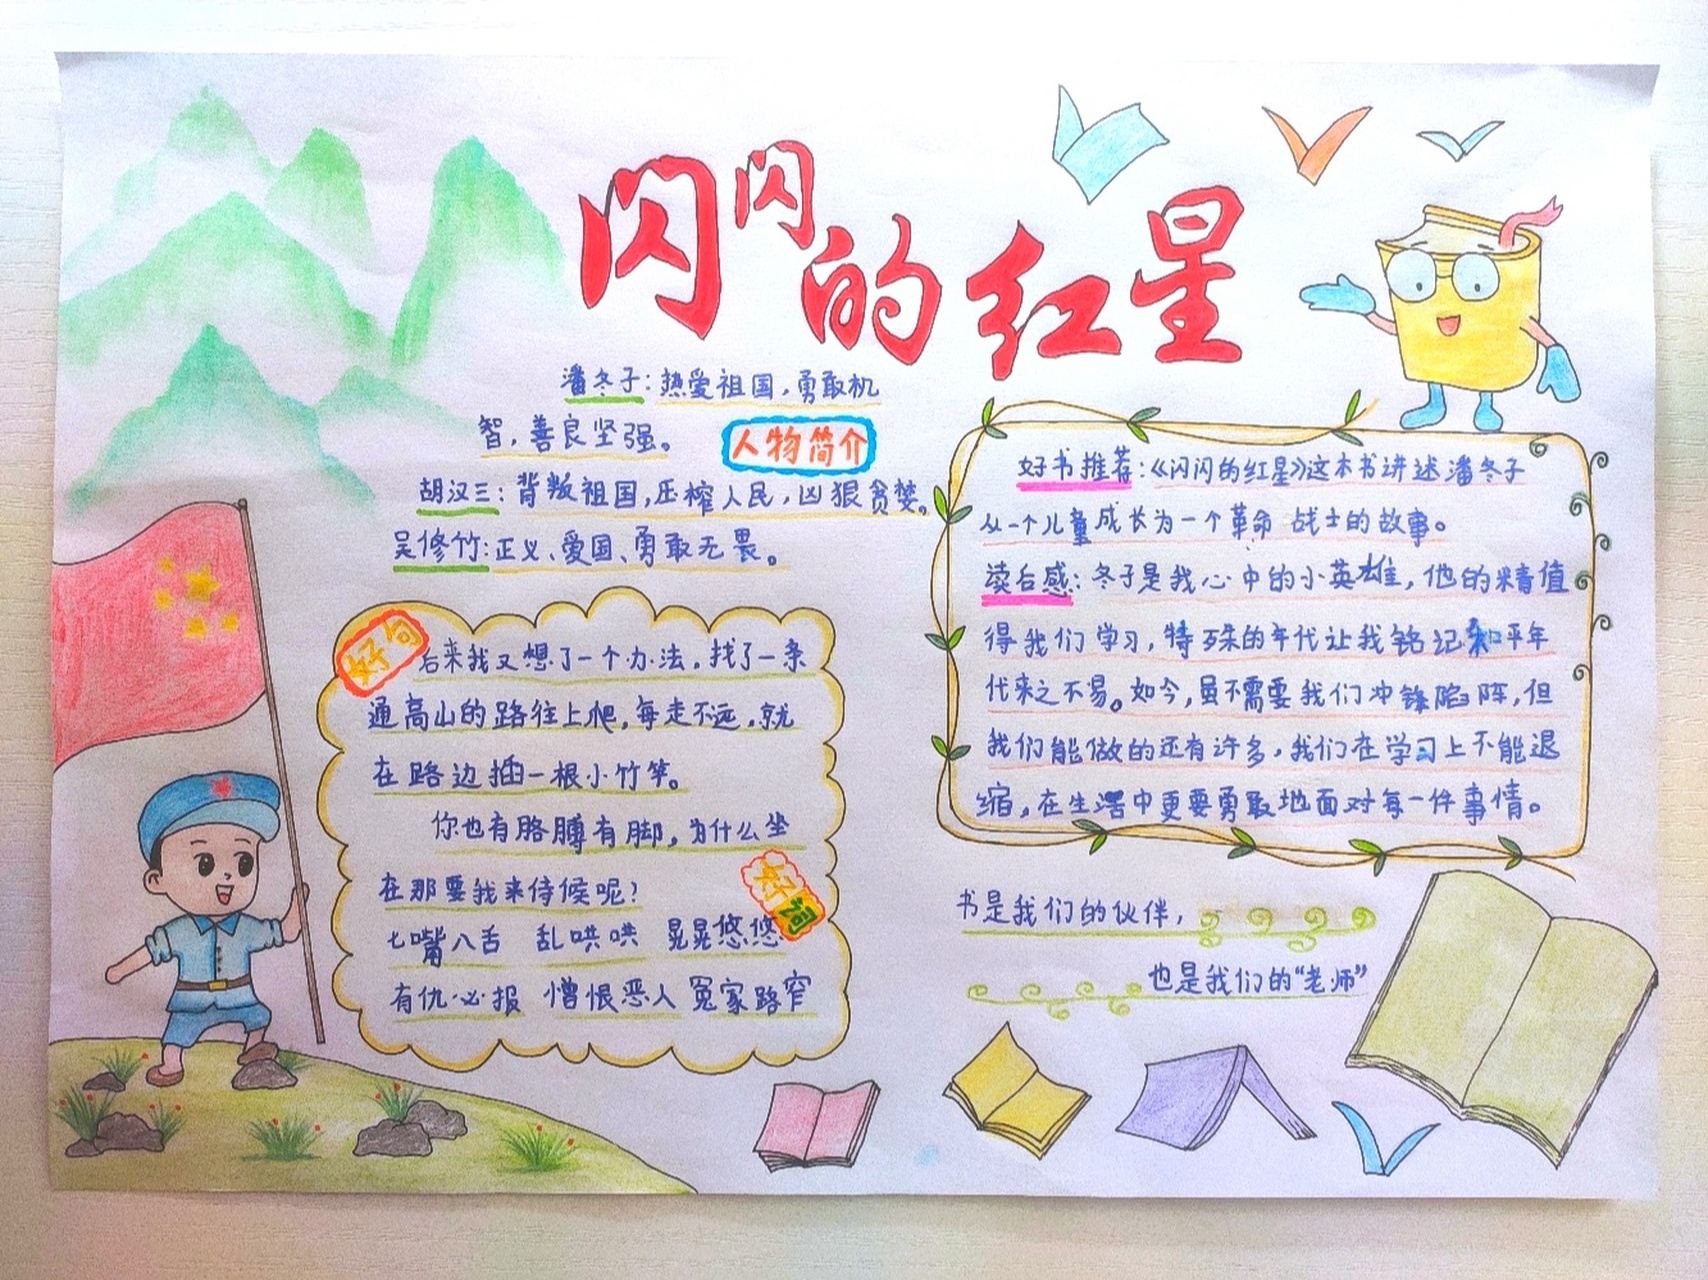 闪闪的红星
潘冬子：热爱祖国，勇敢机
智，善良坚强。
人物简介
胡汉三：背叛祖国，压榨人民，凶狠贪婪。
吴修竹：正义、爱国、勇敢无畏。
好句
后来我又想了一个办法，找了一条
通高山的路往上爬，每走不远，就
在路边插一根小竹竿。
你也有胳膊有脚，为什么坐
在那要我来侍候呢？
好词
七嘴八舌 乱哄哄 晃晃悠悠
有仇必报 憎恨恶人 冤家路窄
好书推荐：《闪闪的红星》这本书讲述潘冬子
从一个儿童成长为一个革命战士的故事。
读后感：冬子是我心中的小英雄，他的精值
得我们学习，特殊的年代让我铭记和平年
代来之不易。如今，虽不需要我们冲锋陷阵，但
我们能做的还有许多，我们在学习上不能退
缩，在生活中更要勇敢地面对每一件事情。
书是我们的伙伴，
也是我们的“老师”